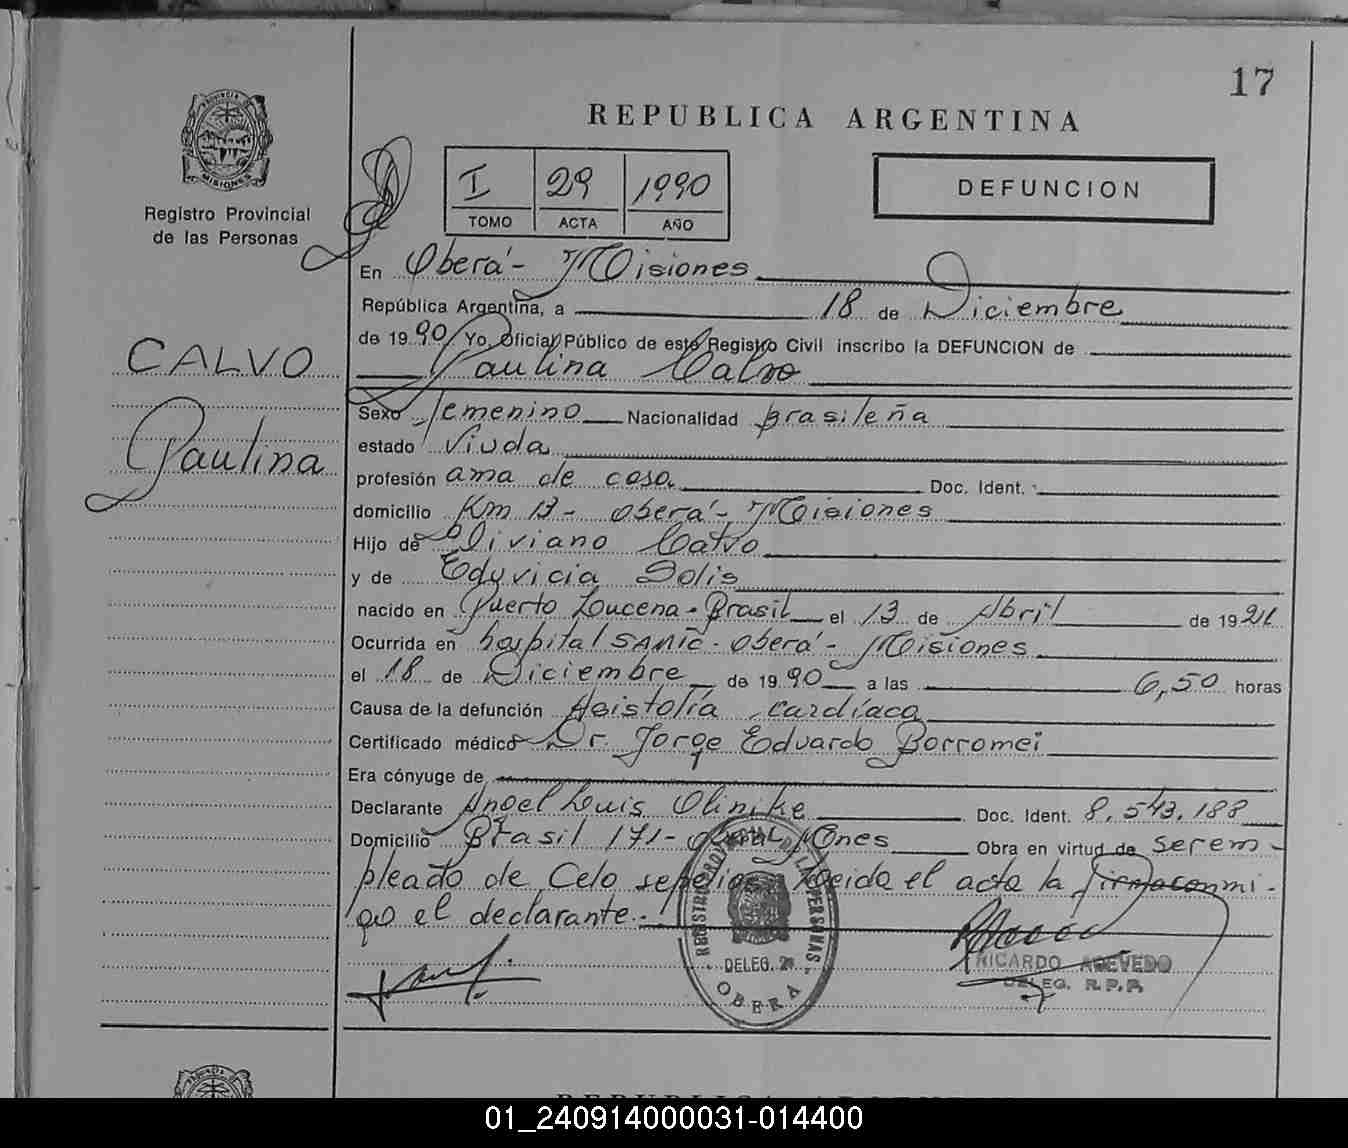 17
REPUBLICA ARGENTINA
PROVINCIA DE
MISIONES
Registro Provincial
de las Personas
I 29 1990
TOMO ACTA AÑO
DEFUNCION
En Oberá - Misiones
República Argentina, a 18 de Diciembre
de 1990 Yo, Oficial Público de este Registro Civil inscribo la DEFUNCION de
CALVO
Paulina Calvo
Paulina
Sexo femenino Nacionalidad brasileña
estado Viuda
profesión ama de casa Doc. Ident.
domicilio Km 13 - Oberá - Misiones
Hijo de Oliviano Calvo
y de Eduvicia Solis
nacido en Puerto Loucena - Brasil el 13 de Abril de 19
Ocurrida en hospital SAMIC - Oberá - Misiones
el 18 de Diciembre de 1990 a las 6,50 horas
Causa de la defunción Asistolía cardíaca
Certificado médico Dr. Jorge Eduardo Borromei
Era cónyuge de
Declarante Angel Luis Olinike Doc. Ident. 8.543.188
Domicilio Brasil 171 - Oberá Mnes Obra en virtud de ser em-
pleado de Celo sepelios. Leida el acta la firma conmi-
go el declarante.-
REGISTRO PROVINCIAL DE LAS PERSONAS
DELEG. 2ª
OBERA
RICARDO ACEVEDO
DELEG. R.P.P.
REPUBLICA ARGENTINA
01_240914000031-014400